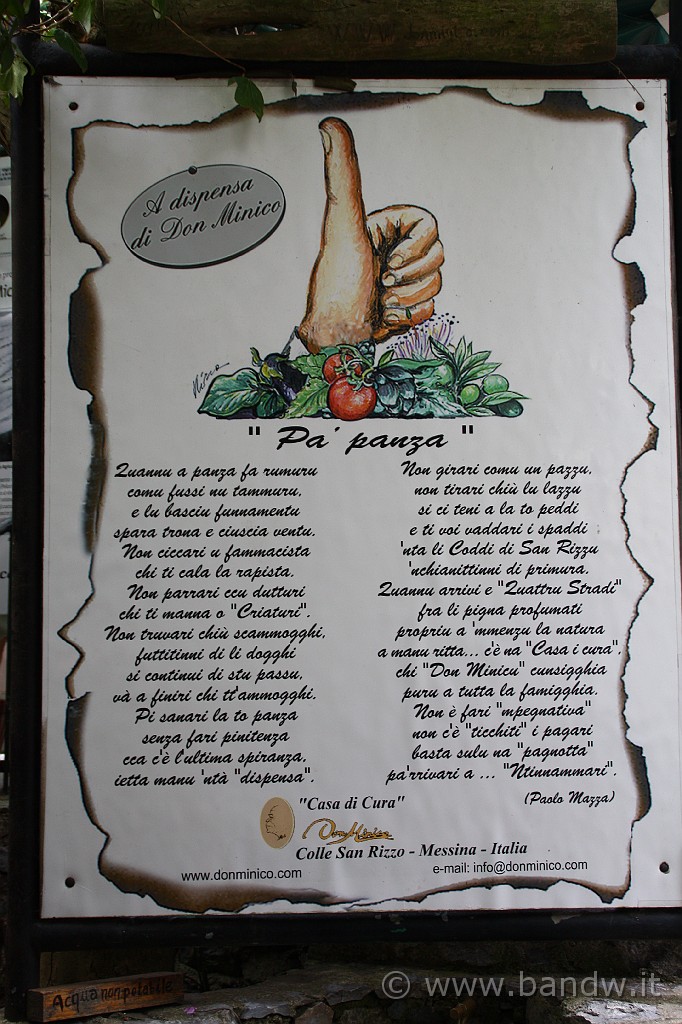 A dispensa
di Don Minico
" Pa' panza "
Quannu a panza fa rumuru
comu fussi nu tammuru,
e lu basciu funnamentu
spara trona e ciuscia ventu.
Non ciccari u fammacista
chi ti cala la rapista.
Non parrari ccu dutturi
chi ti manna o "Criaturi".
Non truvari chiù scammogghi,
futtitinni di li dogghi
si continui di stu passu,
và a finiri chi tt'ammogghi.
Pi sanari la to panza
senza fari pinitenza
cca c'è l'ultima spiranza,
ietta manu 'ntà "dispensa".
Non girari comu un pazzu,
non tirari chiù lu lazzu
si ci teni a la to peddi
e ti voi vaddari i spaddi
'nta li Coddi di San Rizzu
'nchianittinni di primura.
Quannu arrivi e "Quattru Stradi"
fra li pigna profumati
propriu a 'mmenzu la natura
a manu ritta... c'è na "Casa i cura",
chi "Don Minicu" cunsigghia
puru a tutta la famigghia.
Non è fari "mpegnativa"
non c'è "ticchiti" i pagari
basta sulu na "pagnotta"
pa'rrivari a ... "Ntinnammari".
(Paolo Mazza)
"Casa di Cura"
Don Minico
Colle San Rizzo - Messina - Italia
www.donminico.com
e-mail: info@donminico.com
Acqua non potabile
© www.bandw.it